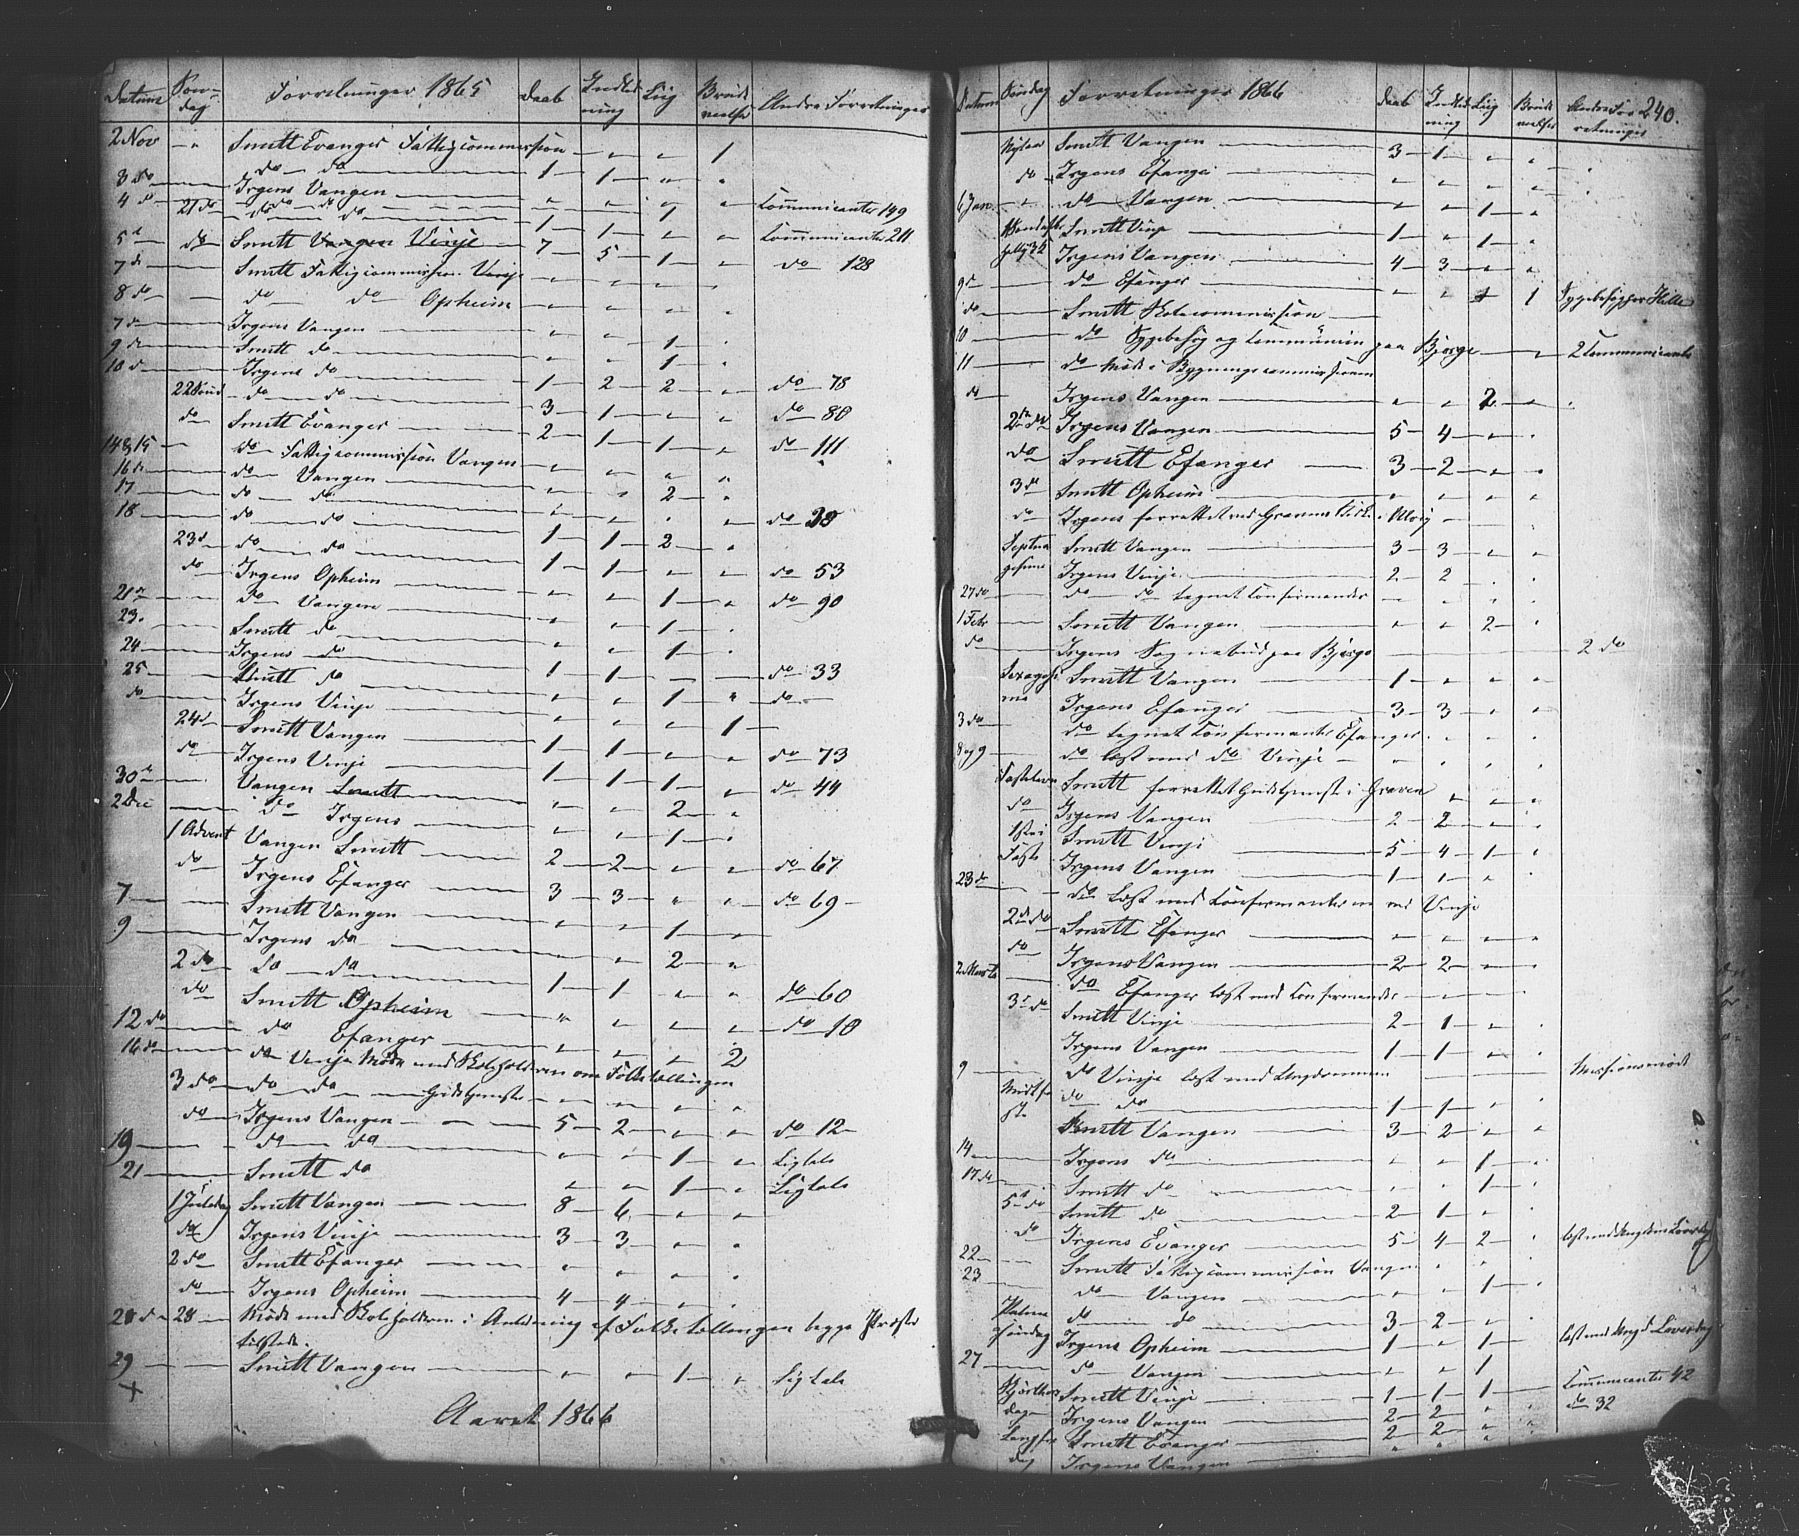 Datum Søndag Forretninger 1865 Daab Indledning Liig Brudevielse Andre Forretninger
2 Nov " Smitt Evanger Fattigcommission " " " 1
3 do do do 1 1 " "
4 do Irgens Vangen " " " "
21 do do do 1 1 " " Communicanter 149
5 do Smitt Vinje 7 5 1 " Communicanter 211
7 do Smitt Fattigcommission Vinje " " " " do 128
8 do do do Opheim " " " "
7 do Irgens Vangen " " 1 "
9 do Smitt do " " 1 "
10 do Irgens do 1 2 2 " do 78
22 Sønd do do 3 1 " " do 80
do Smitt Evanger 2 1 1 " do 111
14 & 15 do Fattigcommission Vangen " " " "
16 do do Vangen " " 2 "
17 do do
18 do do 1 1 2 " do 38
23 do do do 1 1 " "
do Irgens Opheim " " 1 " do 53
21 do do Vangen " " 1 " do 90
23. Smitt do " " 1 "
24 Irgens do
25 Smitt do 1 1 do 33
do Irgens Vinje " " 1 " do
24 do Smitt Vangen 1 1 " 1
do Irgens Vinje 1 1 1 " do 73
30 do Vangen Smitt " " 2 " do 44
2 Dec do Irgens " " 1 "
1 Advent Vangen Smitt 2 2 " "
do Irgens Efanger 3 3 " " do 67
7 Smitt Vangen " " 1 " do 69
9 Irgens do " " 2 "
2 do do do 1 1 " "
do Smitt Opheim " " " " do 60
12 do do Efanger " " " 2 do 10
16 do do Vinje Møde med Skoleholderen om Folketællingen
3 do do do Gudstjeneste " " " "
do Irgens Vangen 5 2 " " do 12
19 do do " " 1 " Ligtale
21 Smitt do " " 1 " Ligtale
1 Juledag Smitt Vangen 8 6 " "
do Irgens Vinje 3 3 " "
2 do Smitt Efanger " " " "
do Irgens Opheim 4 4 " "
28 do 28 Møde med Skoleholderen i Anledning af Folketællingen begge Præster
tilstede.
29 Smitt Vangen " " 1 " Ligtale
Aaret 1866
Datum Søndag Forretninger 1866 Daab Indledning Liig Brudevielse Andre Forretninger 240.
Nytaar Smitt Vangen 3 1 " "
do Irgens Efanger " " " "
6 Jan " do Vangen " " 1 "
Smitt Vinje 1 " 1 "
Irgens Vangen 4 3 " "
9 do do Efanger " " 1 Sygebesøg
do Smitt Skolecommission
10 do Sygebesøg og Communion paa Bjørge 2 Communicanter
11 do Møde i Bygningscommissionen
do Irgens Vangen " " 2 "
2den do Irgens Vangen 5 4 " "
do Smitt Efanger 3 2 " "
3 do Smitt Opheim " " " "
do Irgens forrettet ved Graven
Septuagesima Smitt Vangen 3 3 " "
Irgens Vinje 2 2 " "
27 do do do tegnet Confirmander " " "
1 Febr Smitt Vangen " " 2 "
do Irgens Sognebud paa Bjørge 2 do
Sexagesima Smitt Vangen 1 " " "
Irgens Efanger 3 3 " "
3 do do tegnet Confirmander Efanger " " "
8 og 9 do læst med do Vinje " " "
Fastelavn Smitt forrettet Gudstjeneste i Graven " " "
do Irgens Vangen 2 2 " "
1ste i Faste Smitt Vinje 5 4 1 "
Irgens Vangen 1 1 " "
23 do do læst med Confirmanterne ved Vinje
2 do do Smitt Efanger " " " "
do Irgens Vangen 2 2 " "
2 Marts do Efanger læst med Confirmander " "
3 do Smitt Vinje 2 1 " "
Irgens Vangen 1 1 " "
9 do Vinje læst med Ungdommen Missionsmøde
Midtfaste do do 1 1 " "
Smitt Vangen 3 2 " "
14 Irgens do " " 1 "
17 do Smitt do " " 1 "
5 do Smitt do 2 1 " "
do Irgens Evanger 5 4 2 " læst med Ungdom Løverdag
22 Smitt Fattigcommission Vangen " "
23 do Vangen " " 1 "
Palmesøndag do do 3 2 " "
Irgens Opheim 1 " 1 " læst med Ungd. Løverdag
27 do Vangen " " 1
Skjærthorsdag Smitt Vinje 1 1 1 " Communicanter 42
Irgens Vangen 2 2 " " do 32
Langfredag Smitt Evanger 2 2 " "
Irgens Vangen " " " "